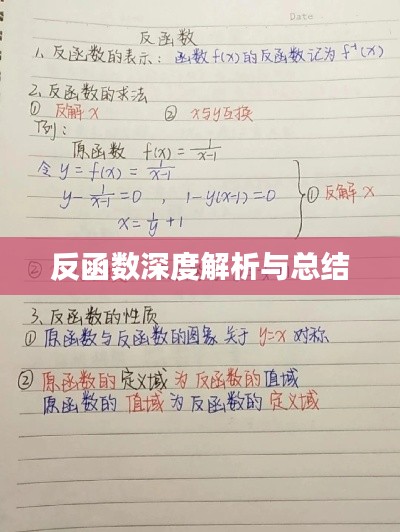 Date
反函数
1、反函数的表示：函数f(x)的反函数记为f⁻¹(x)
2、反函数的求法
① 反解x ② x与y互换
例：
原函数 f(x) = 1/(x-1)
令 y = f(x) = 1/(x-1)
y - 1/(x-1) = 0 , 1-y(x-1)=0
① 反解x
x = 1/y + 1
反函数深度解析与总结
②
3、反函数的性质
① 原函数与反函数的图象关于 y=x 对称
② 原函数的定义域为反函数的值域
原函数的值域为反函数的定义域